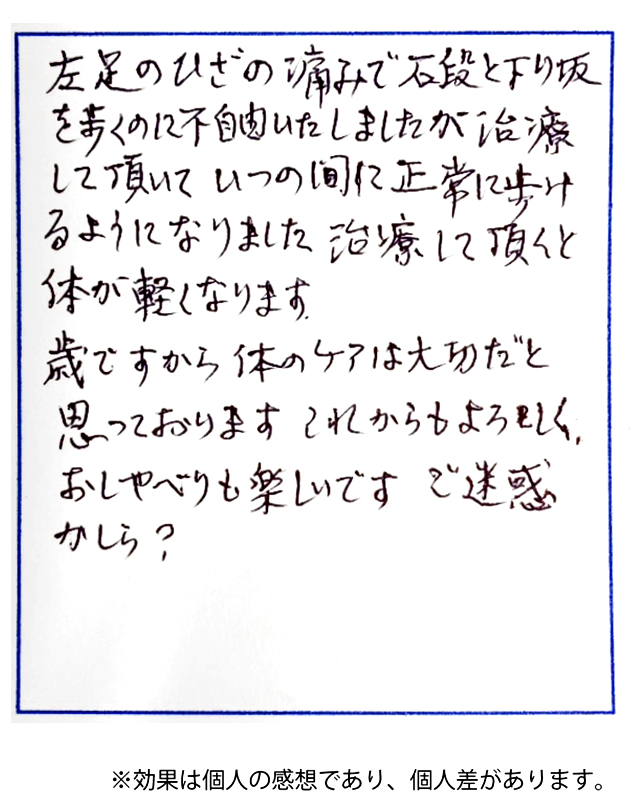 左足のひざの痛みで石段と下り坂
を歩くのに不自由いたしましたが治療
して頂いていつの間に正常に歩け
るようになりました 治療して頂くと
体が軽くなります。
歳ですから体のケアは大切だと
思っております これからもよろしく。
おしゃべりも楽しいです ご迷惑
かしら?
※効果は個人の感想であり、個人差があります。